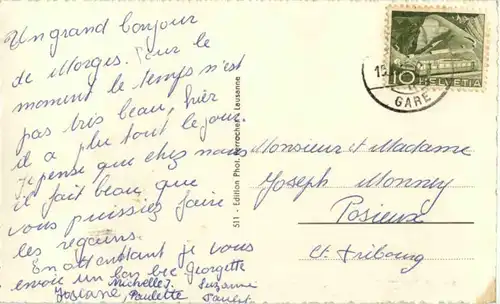 Un grand bonjour
de Morges. Pour le
moment le temps n'est
pas très beau, hier
il a plu tout le jour.
Je pense que chez nous
il fait beau, que
vous puissiez faire
les regains.
En attendant je vous
envoie un bon bec Georgette
Michelle J. Suzanne
Josiane Paulette
511 - Edition Phot. Perrochet, Lausanne
10 HELVETIA
15
GARE
Monsieur et Madame
Joseph Monney
Posieux
Ct. Fribourg